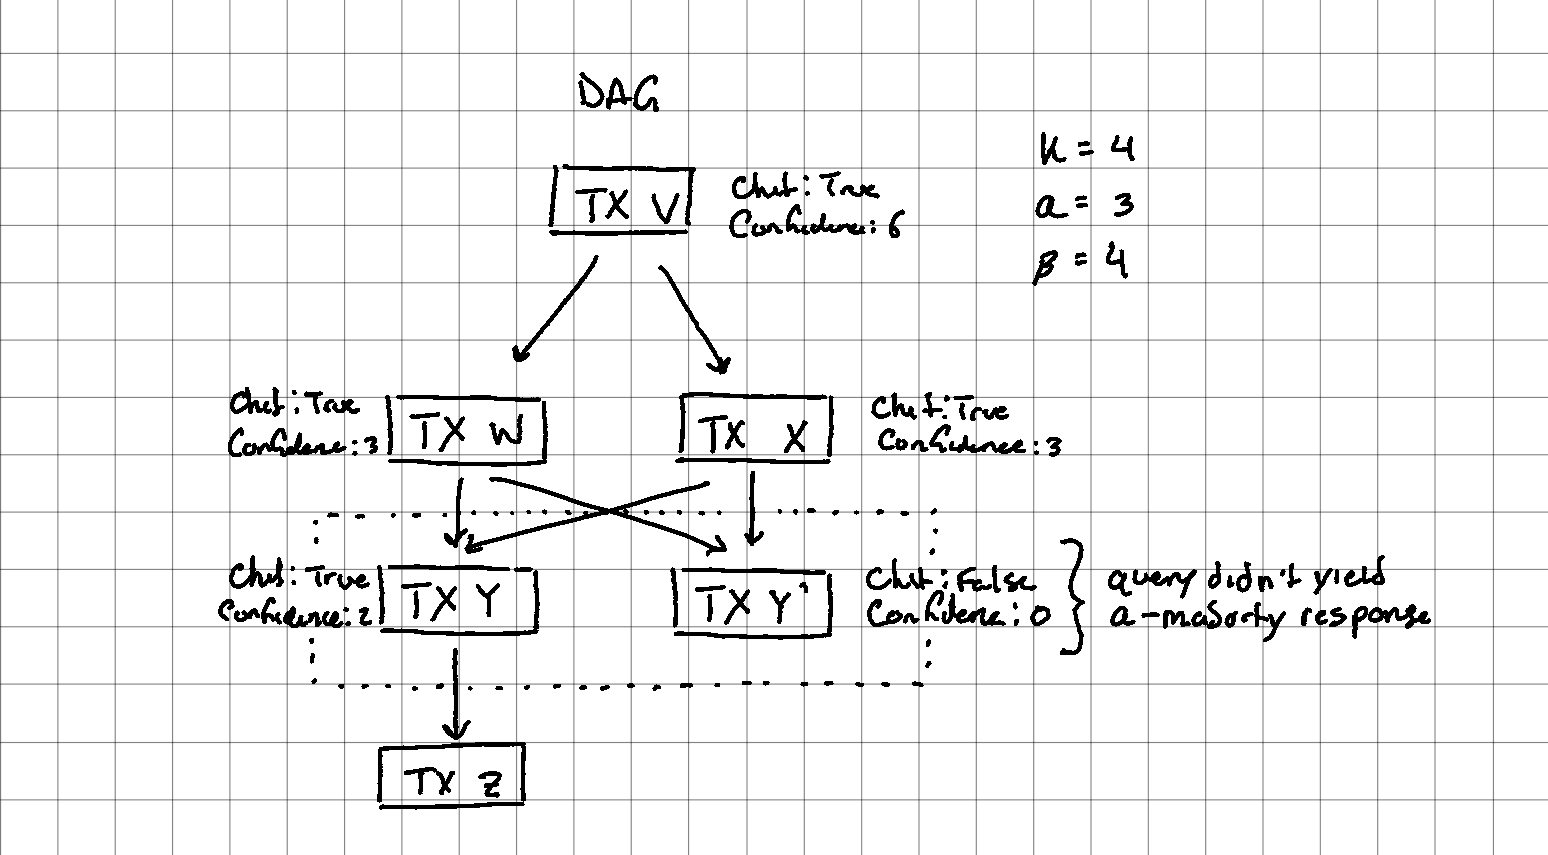 DAG
K = 4
a = 3
β = 4
TX V
Chit: True
Confidence: 6
Chit: True
Confidence: 3
TX W
TX X
Chit: True
Confidence: 3
Chit: True
Confidence: 2
TX Y
TX Y'
Chit: False
Confidence: 0
query didn't yield
a-majority response
TX Z